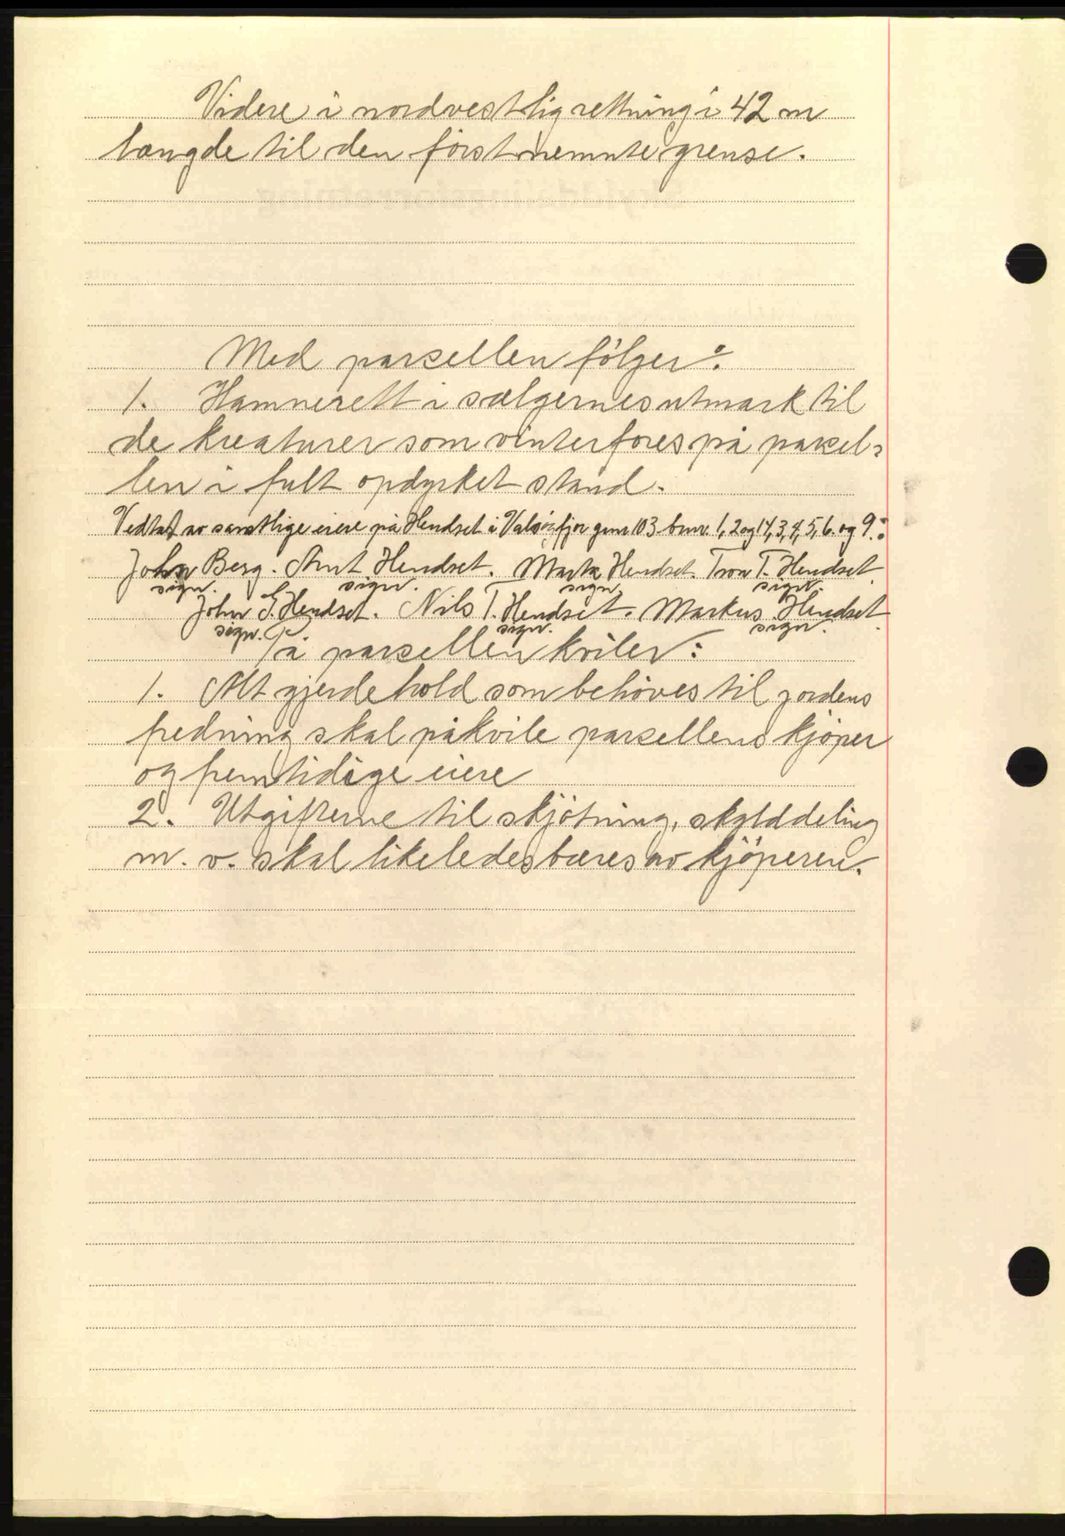 Videre i nordvestlig rettning i 42 m
længde til den først nemnte grense.
Med parsellen følger:
1. Hamnerett i sælgernes utmark til
de kreaturer som vinterfores på parsel-
len i fult opdyrket stand.
Vedtat av samtlige eiere på Hendset i Valsøyfjor gnr 103 bnr. 1, 2 og 14, 3, 4, 5, 6. og 9.:
John Berg. Arnt Hendset. Marta Hendset. Tron T. Hendset.
sign. sign. sign. sign.
John G. Hendset. Nils T. Hendset. Markus Hendset.
sign. sign. sign.
På parsellen kviler:
1. Alt gjerdehold som behøves til jordens
fredning skal påkvile parsellens kjøper
og fremtidige eiere
2. Utgifterne til skjøtning, skylddeling
m. v. skal likeledes bæres av kjøperen.